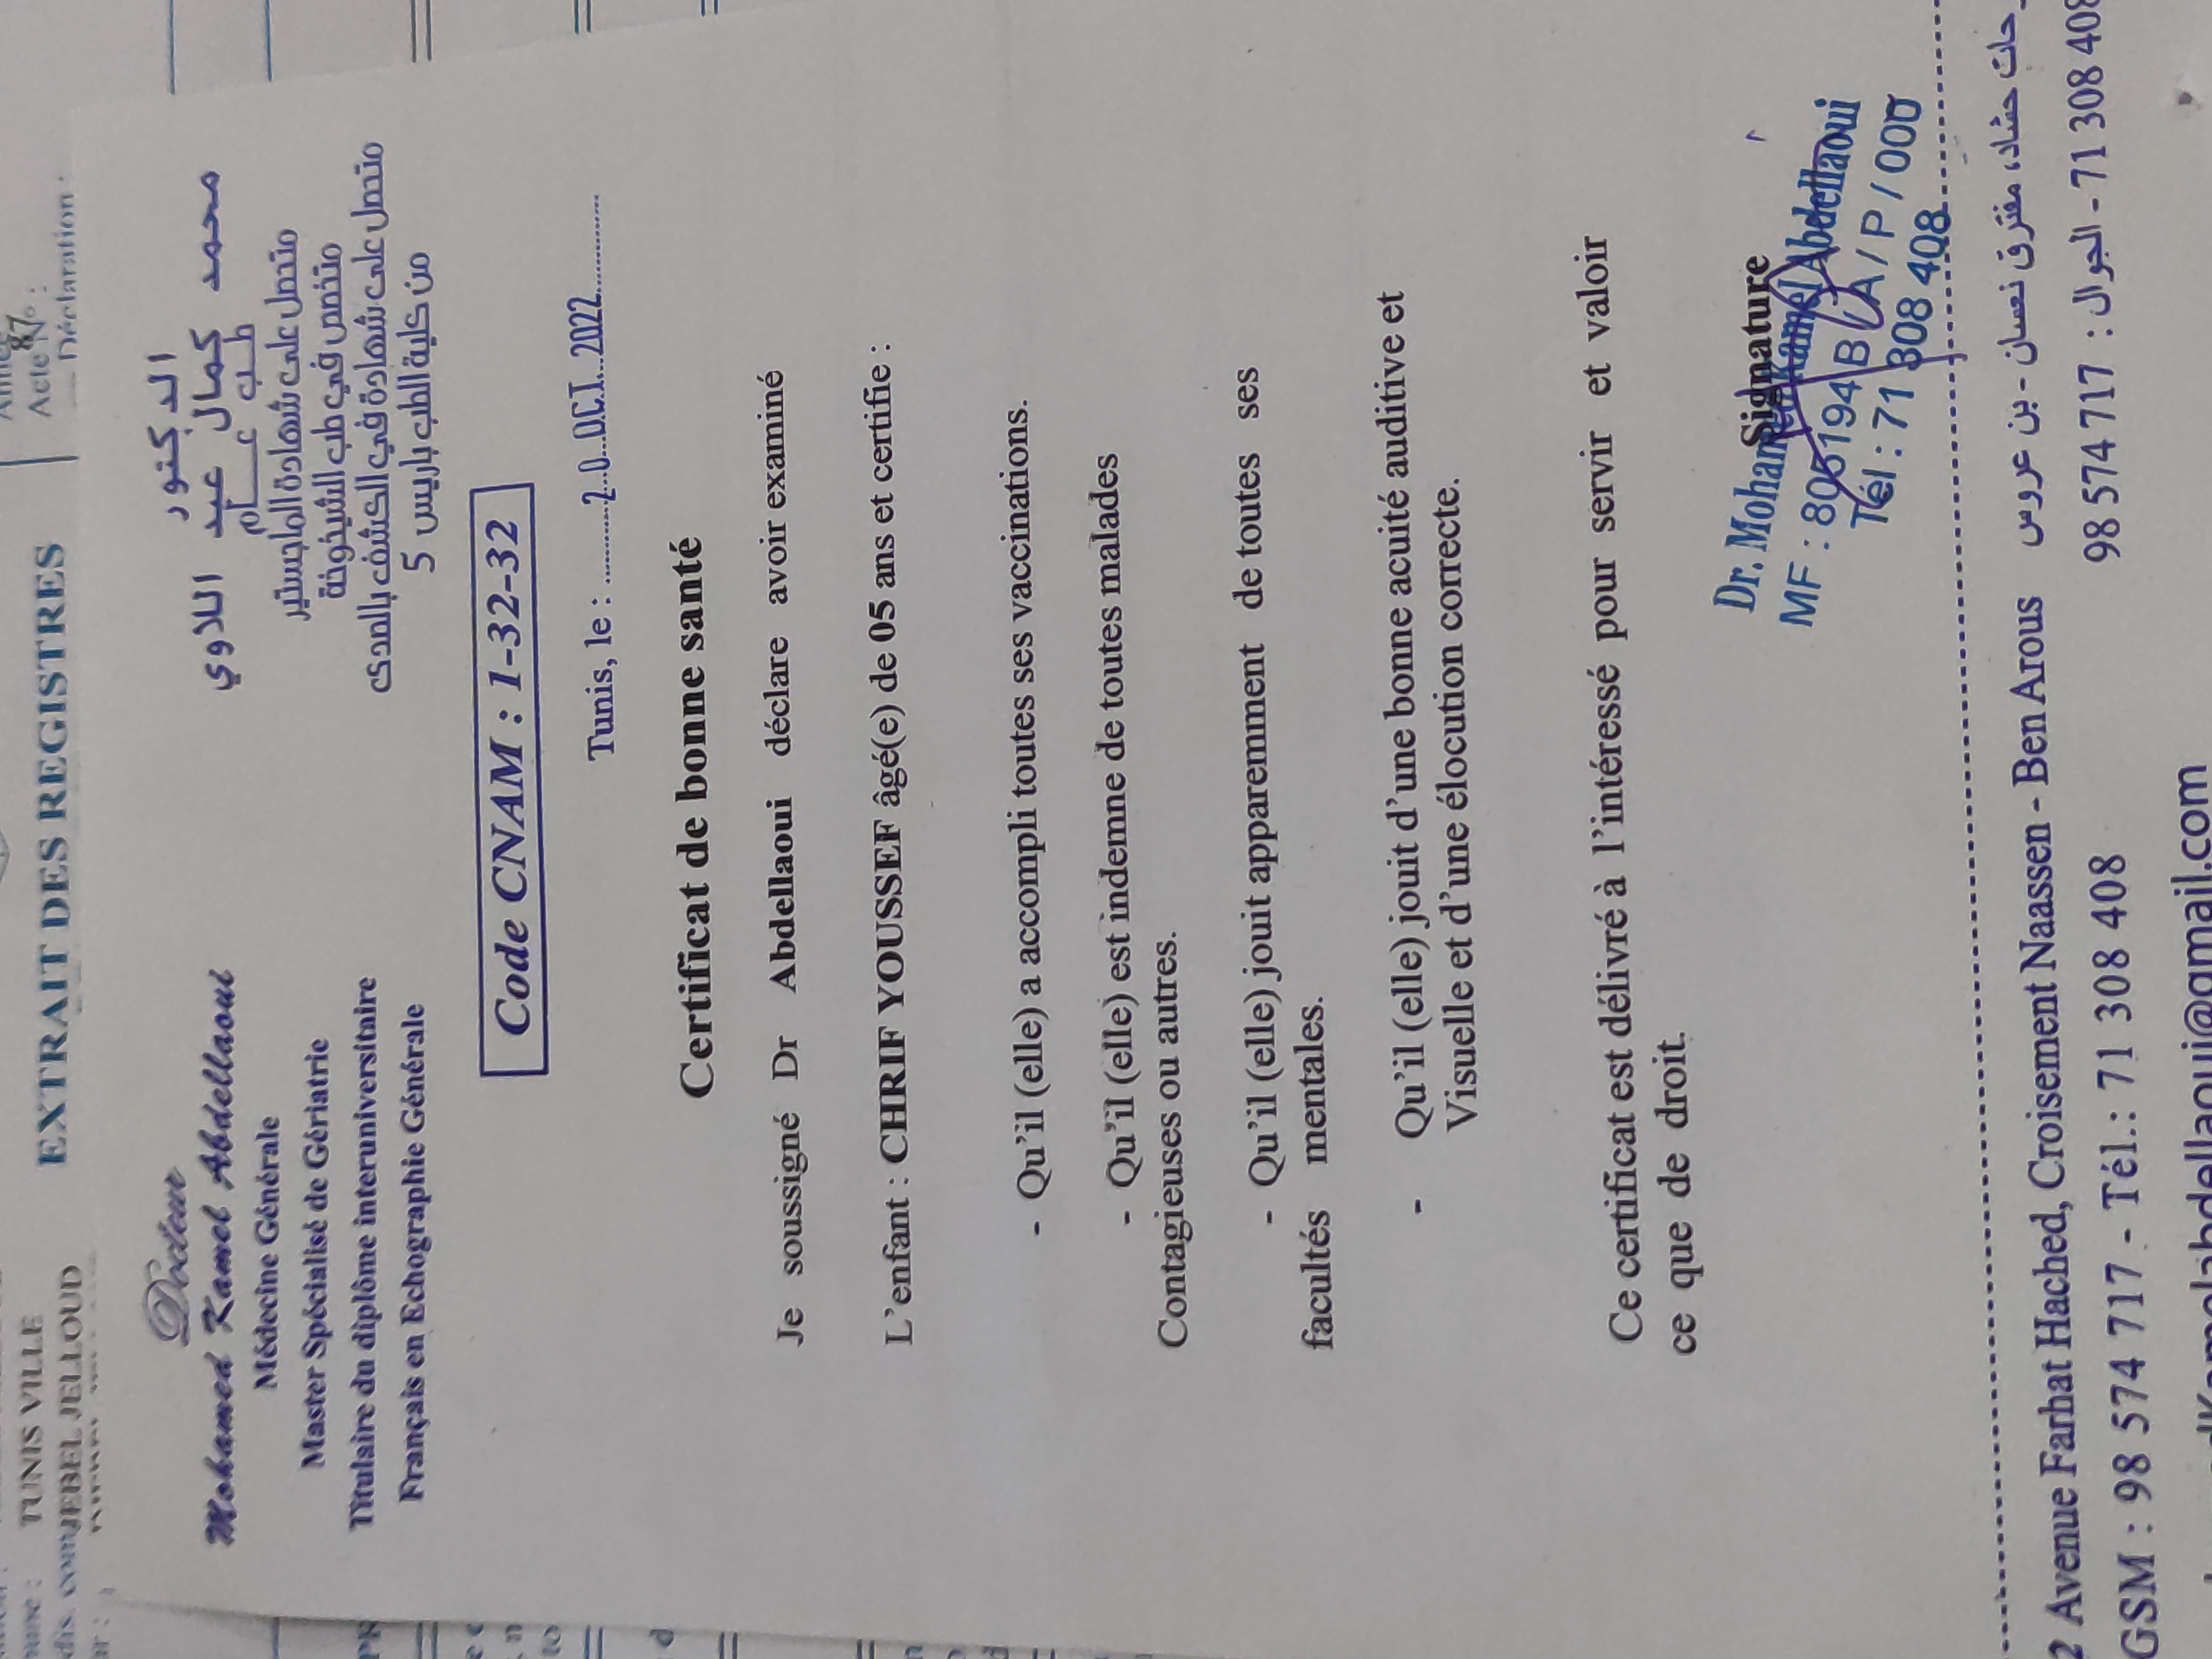 Acte N° :
87
Déclaration
EXTRAIT DES REGISTRES
TUNIS VILLE
JEBEL JELLOUD
Docteur
Mohamed Kamel Abdellaoui
Médecine Générale
Master Spécialisé de Gériatrie
Titulaire du diplôme interuniversitaire
Français en Echographie Générale
الدكتور
محمد كمال عبد اللاوي
طب عام
متحصل على شهادة الماجستير
متخصص في طب الشيخوخة
متحصل على شهادة في الكشف بالصدى
من كلية الطب باريس 5
Code CNAM : 1-32-32
Tunis, le : 20 OCT. 2022
Certificat de bonne santé
Je soussigné Dr Abdellaoui déclare avoir examiné
L'enfant : CHRIF YOUSSEF âgé(e) de 05 ans et certifie :
- Qu'il (elle) a accompli toutes ses vaccinations.
- Qu'il (elle) est indemne de toutes malades
Contagieuses ou autres.
- Qu'il (elle) jouit apparemment de toutes ses
facultés mentales.
- Qu'il (elle) jouit d'une bonne acuité auditive et
Visuelle et d'une élocution correcte.
Ce certificat est délivré à l'intéressé pour servir et valoir
ce que de droit.
Signature
Dr. Mohamed Kamel Abdellaoui
MF : 805194 B / A / P / 000
Tél : 71 308 408
2 Avenue Farhat Hached, Croisement Naassen - Ben Arous
حات حشاد، مفترق نعسان - بن عروس
GSM : 98 574 717 - Tél.: 71 308 408
98 574 717 : الجوال - 71 308 408
abdellaoui@gmail.com